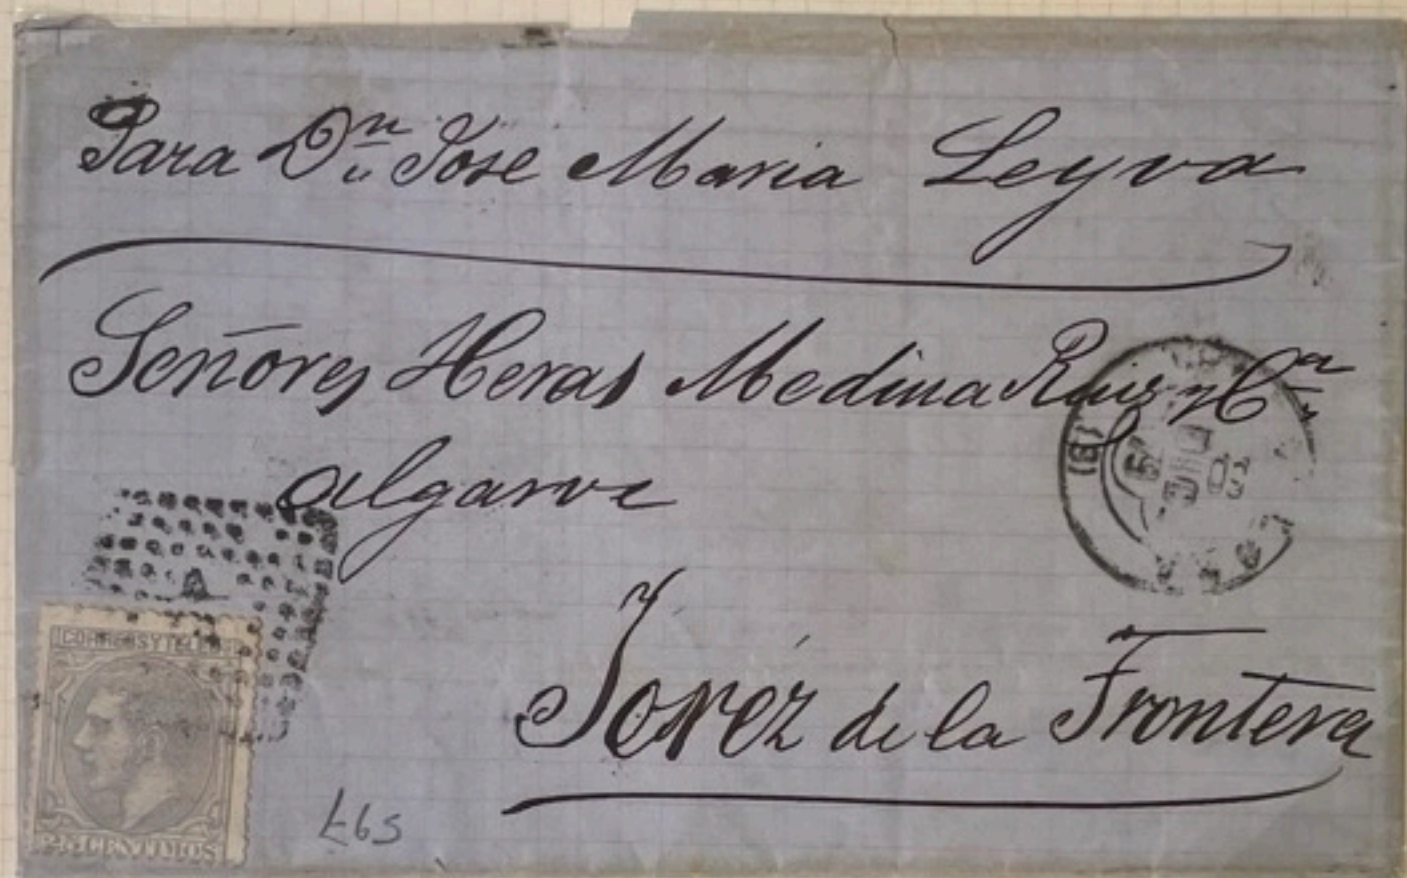 Para Dn. Jose Maria Leyva
Señores Heras Medina Ruiz y Ca
Algarve
Jerez de la Frontera
CORREOS Y TELEGS
25 CENTIMOS